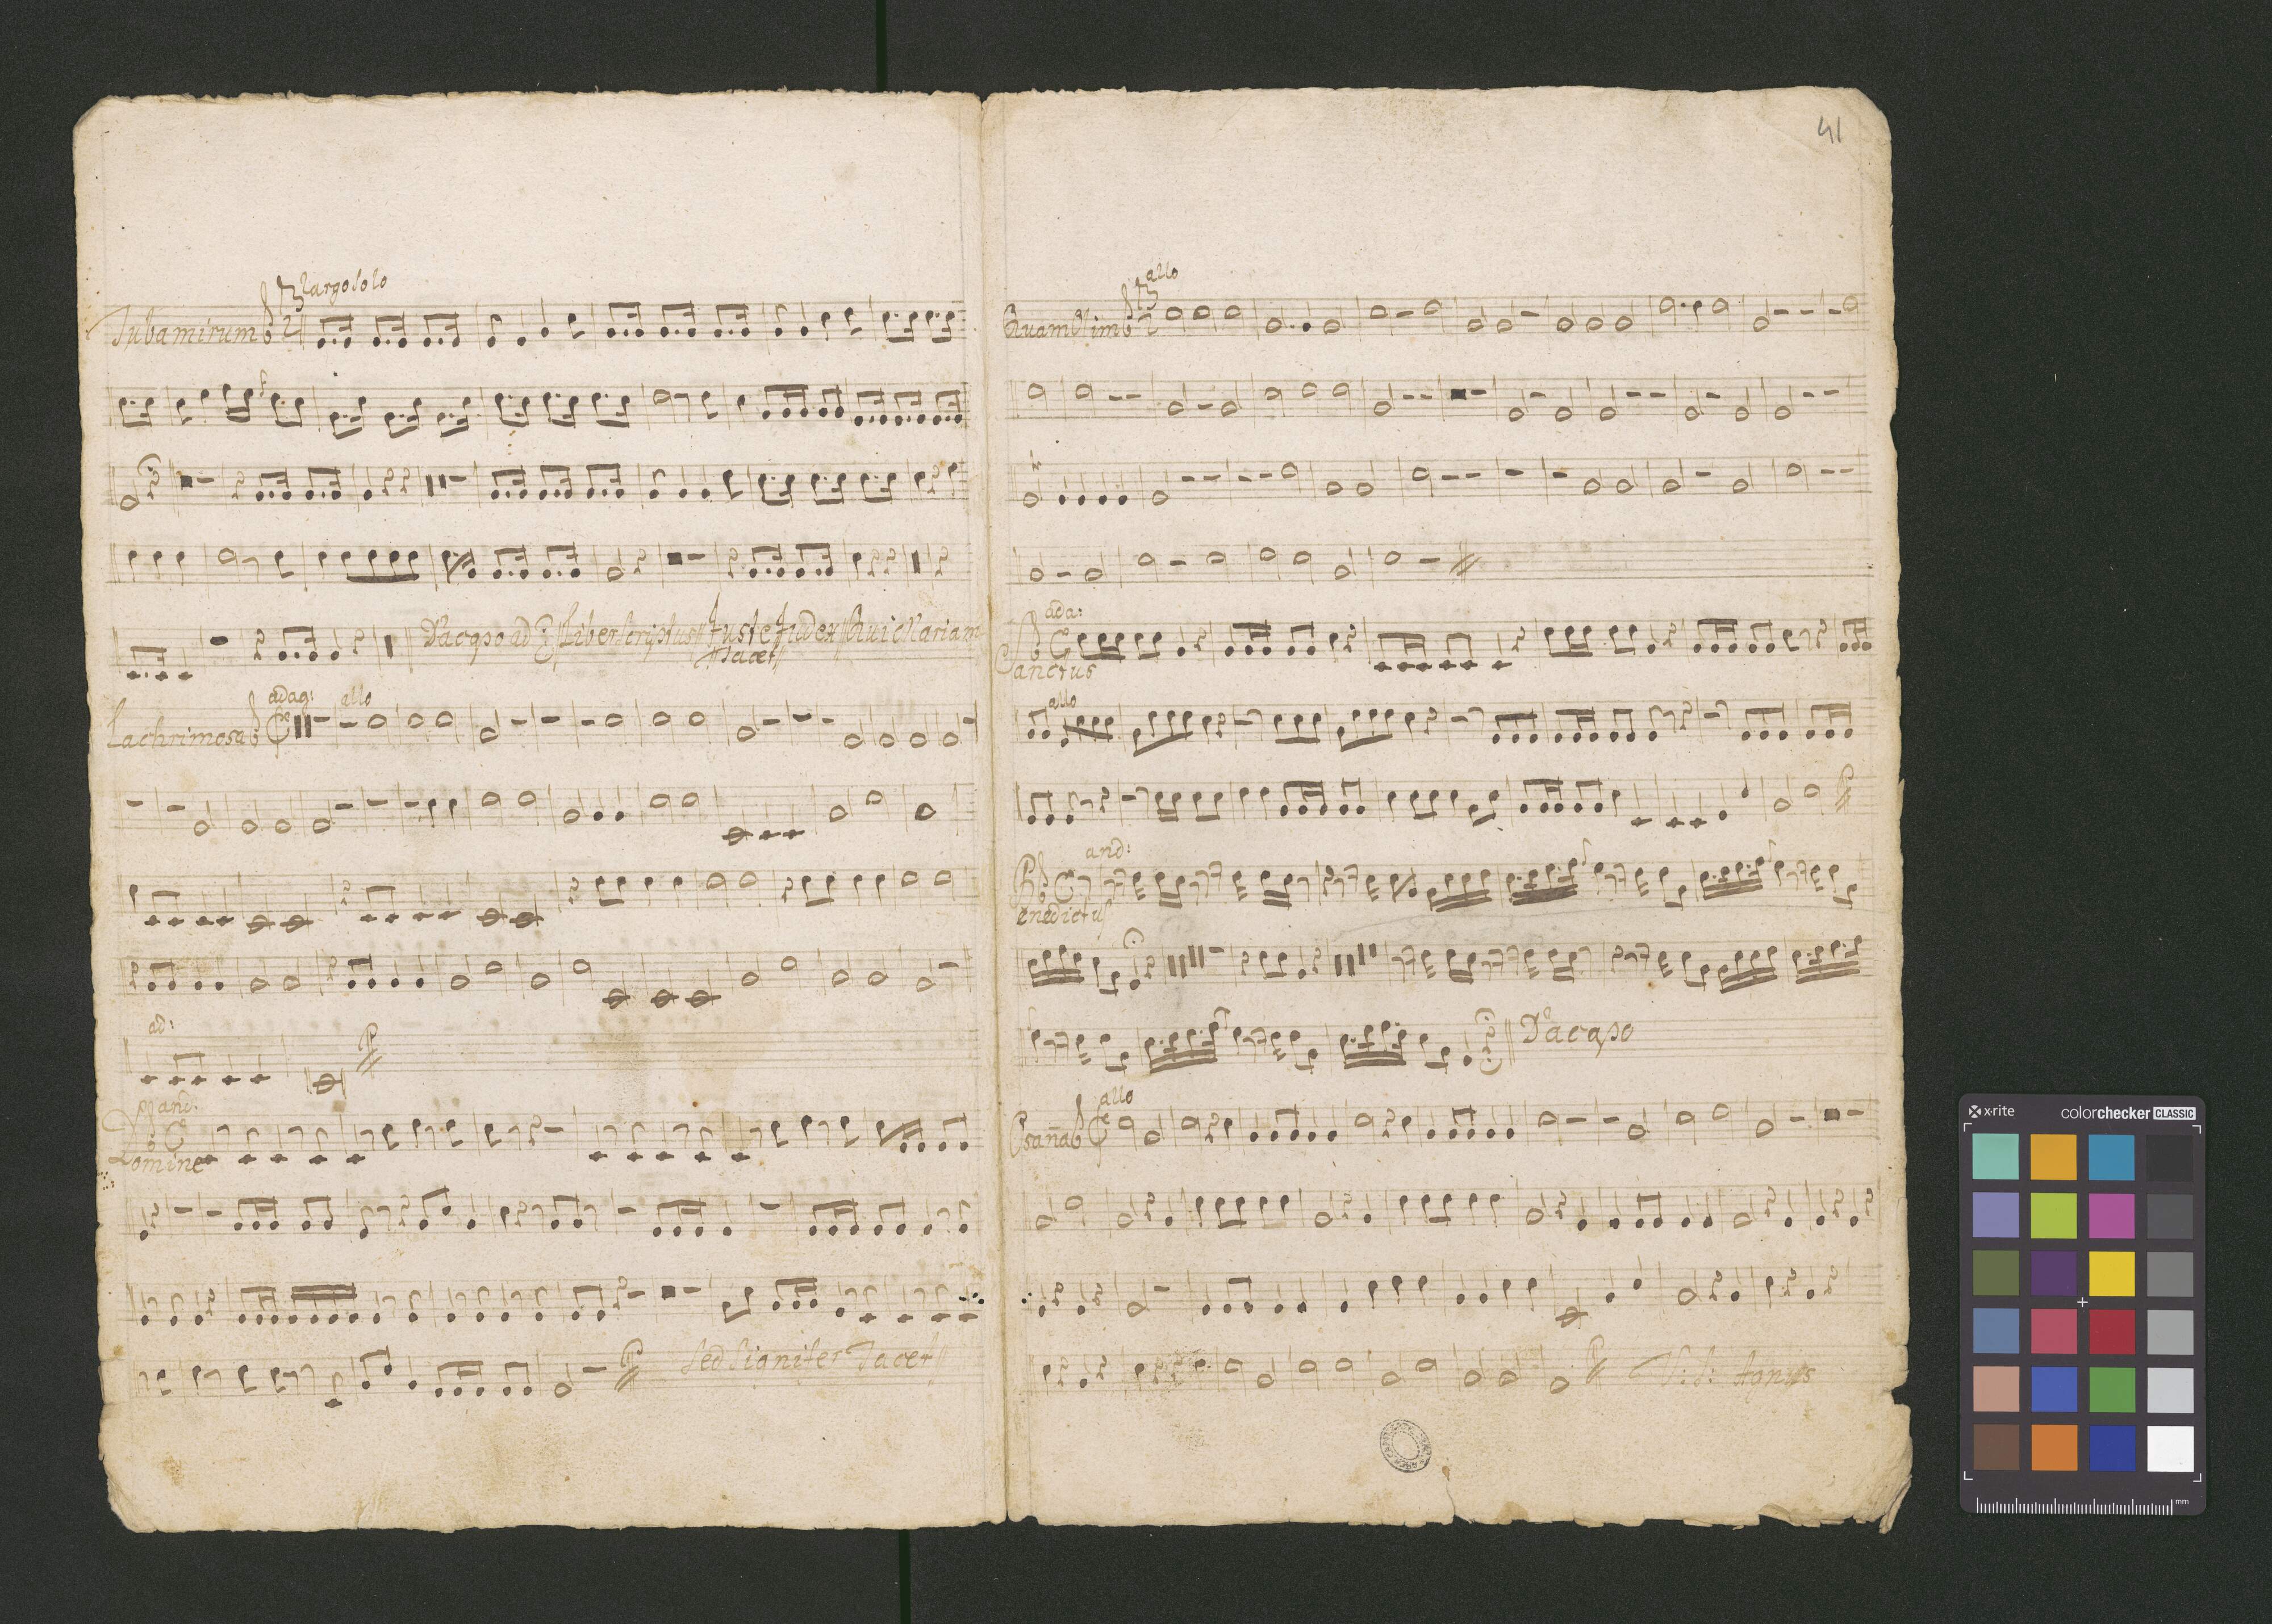 largo solo
Tuba mirum
Da capo ad || Liber scriptus || Juste Judex || Qui Mariam
|| Tacet ||
adag: allo
Lachrimosa
ad:
and:
Domine
Sed Signifer Tacet ||
41
allo
Quam Olim
ada:
Sanctus
allo
and:
Benedictus
Da capo
allo
Osaña
V: S: Agnus
x-rite
colorchecker CLASSIC
mm